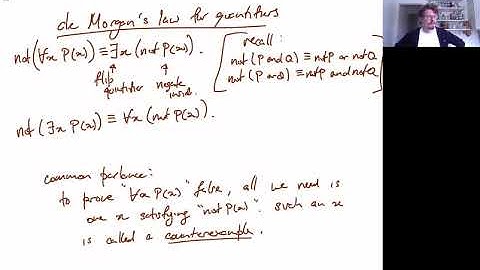 de Morgan's law for quantifiers
not(∀x P(x)) ≡ ∃x (not P(x)).
flip quantifier
negate inside.
recall:
not (P and Q) ≡ not P or not Q
not (P or Q) ≡ not P and not Q
not (∃x P(x)) ≡ ∀x (not P(x)).
common parlance:
to prove "∀x P(x)" false, all we need is
one x satisfying "not P(x)". such an x
is called a counterexample.